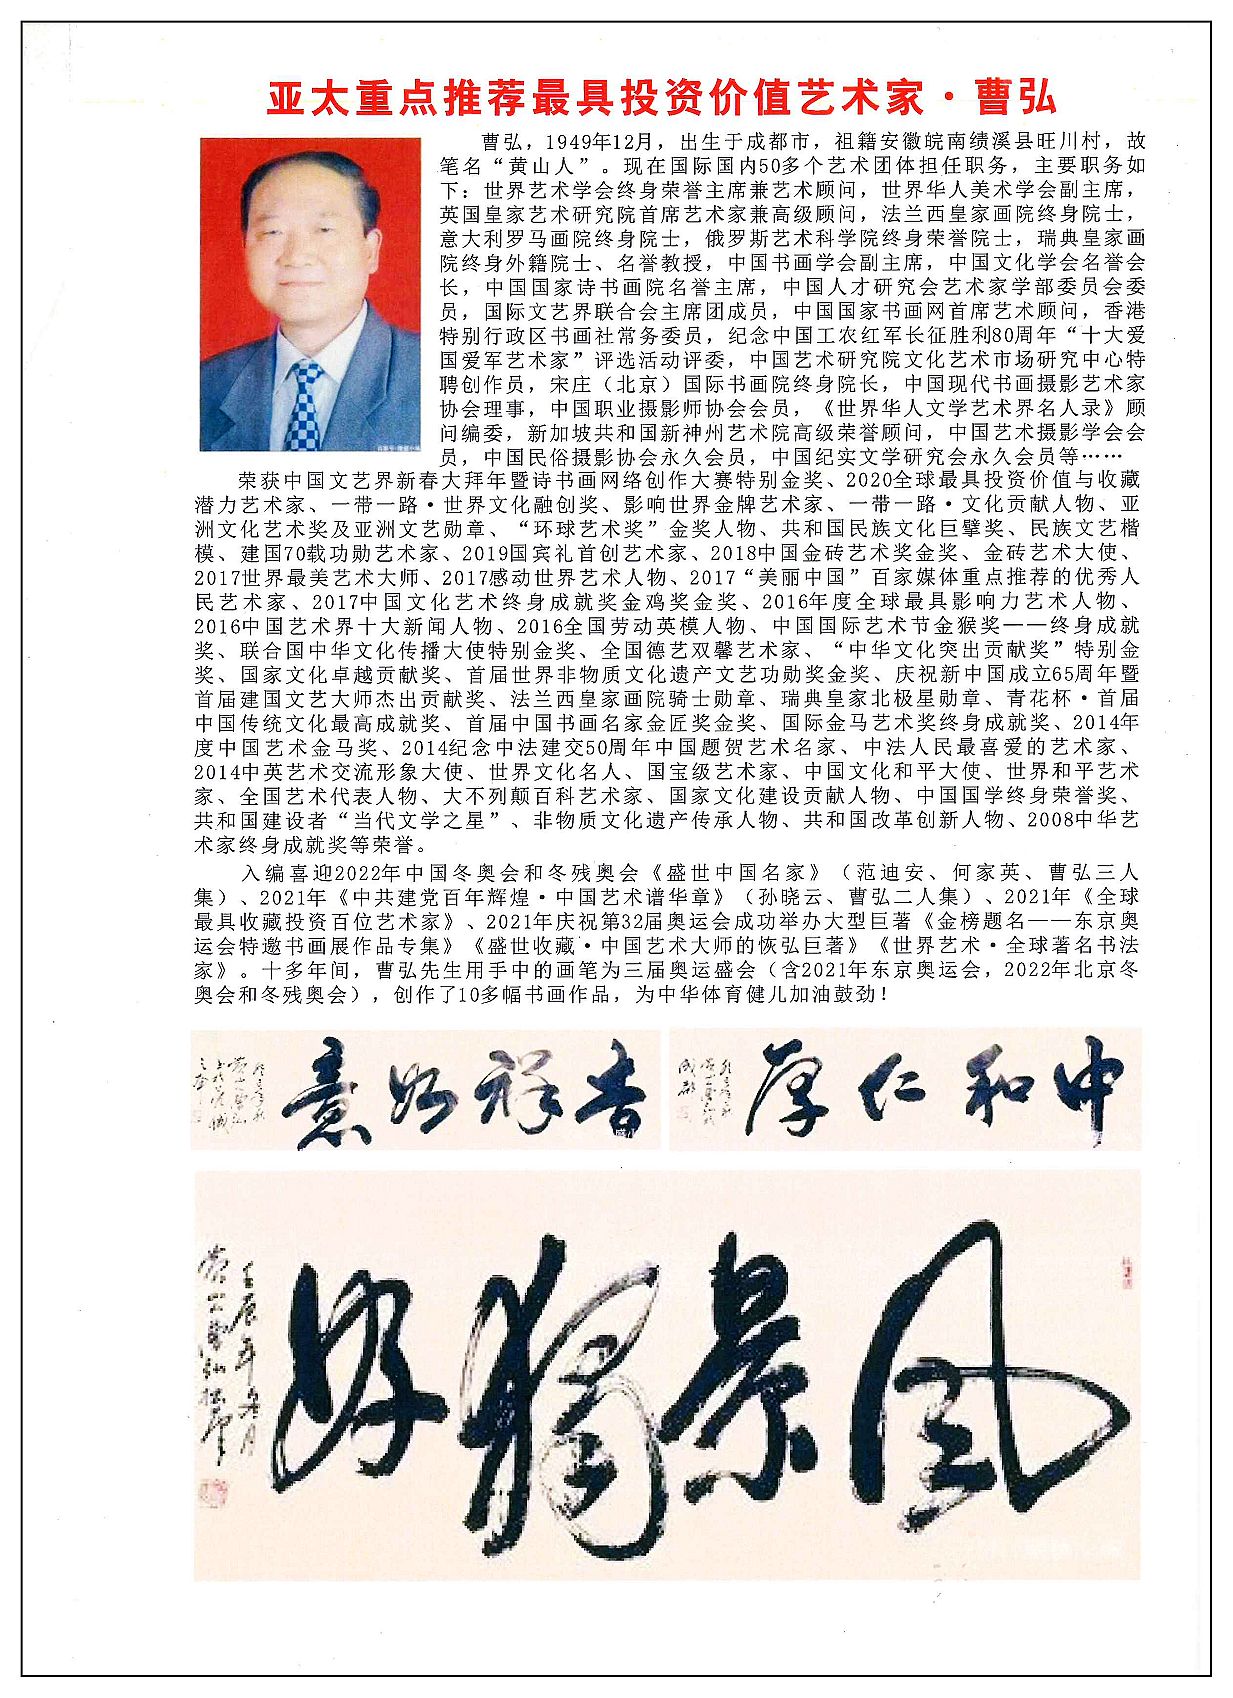 亚太重点推荐最具投资价值艺术家·曹弘
曹弘，1949年12月，出生于成都市，祖籍安徽皖南绩溪县旺川村，故
笔名“黄山人”。现在国际国内50多个艺术团体担任职务，主要职务如
下：世界艺术学会终身荣誉主席兼艺术顾问，世界华人美术学会副主席，
英国皇家艺术研究院首席艺术家兼高级顾问，法兰西皇家画院终身院士，
意大利罗马画院终身院士，俄罗斯艺术科学院终身荣誉院士，瑞典皇家画
院终身外籍院士、名誉教授，中国书画学会副主席，中国文化学会名誉会
长，中国国家诗书画院名誉主席，中国人才研究会艺术家学部委员会委
员，国际文艺界联合会主席团成员，中国国家书画网首席艺术顾问，香港
特别行政区书画社常务委员，纪念中国工农红军长征胜利80周年“十大爱
国爱军艺术家”评选活动评委，中国艺术研究院文化艺术市场研究中心特
聘创作员，宋庄（北京）国际书画院终身院长，中国现代书画摄影艺术家
协会理事，中国职业摄影师协会会员，《世界华人文学艺术界名人录》顾
问编委，新加坡共和国新神州艺术院高级荣誉顾问，中国艺术摄影学会会
员，中国民俗摄影协会永久会员，中国纪实文学研究会永久会员等……
荣获中国文艺界新春大拜年暨诗书画网络创作大赛特别金奖、2020全球最具投资价值与收藏
潜力艺术家、一带一路·世界文化融创奖、影响世界金牌艺术家、一带一路·文化贡献人物、亚
洲文化艺术奖及亚洲文艺勋章、“环球艺术奖”金奖人物、共和国民族文化巨擘奖、民族文艺楷
模、建国70载功勋艺术家、2019国宾礼首创艺术家、2018中国金砖艺术奖金奖、金砖艺术大使、
2017世界最美艺术大师、2017感动世界艺术人物、2017“美丽中国”百家媒体重点推荐的优秀人
民艺术家、2017中国文化艺术终身成就奖金鸡奖金奖、2016年度全球最具影响力艺术人物、
2016中国艺术界十大新闻人物、2016全国劳动英模人物、中国国际艺术节金猴奖——终身成就
奖、联合国中华文化传播大使特别金奖、全国德艺双馨艺术家、“中华文化突出贡献奖”特别金
奖、国家文化卓越贡献奖、首届世界非物质文化遗产文艺功勋奖金奖、庆祝新中国成立65周年暨
首届建国文艺大师杰出贡献奖、法兰西皇家画院骑士勋章、瑞典皇家北极星勋章、青花杯·首届
中国传统文化最高成就奖、首届中国书画名家金匠奖金奖、国际金马艺术奖终身成就奖、2014年
度中国艺术金马奖、2014纪念中法建交50周年中国题贺艺术名家、中法人民最喜爱的艺术家、
2014中英艺术交流形象大使、世界文化名人、国宝级艺术家、中国文化和平大使、世界和平艺术
家、全国艺术代表人物、大不列颠百科艺术家、国家文化建设贡献人物、中国国学终身荣誉奖、
共和国建设者“当代文学之星”、非物质文化遗产传承人物、共和国改革创新人物、2008中华艺
术家终身成就奖等荣誉。
入编喜迎2022年中国冬奥会和冬残奥会《盛世中国名家》（范迪安、何家英、曹弘三人
集）、2021年《中共建党百年辉煌·中国艺术谱华章》（孙晓云、曹弘二人集）、2021年《全球
最具收藏投资百位艺术家》、2021年庆祝第32届奥运会成功举办大型巨著《金榜题名——东京奥
运会特邀书画展作品专集》《盛世收藏·中国艺术大师的恢弘巨著》《世界艺术·全球著名书法
家》。十多年间，曹弘先生用手中的画笔为三届奥运盛会（含2021年东京奥运会，2022年北京冬
奥会和冬残奥会），创作了10多幅书画作品，为中华体育健儿加油鼓劲！
吉祥如意
中和仁厚
成都
风景独好
壬辰年冬月